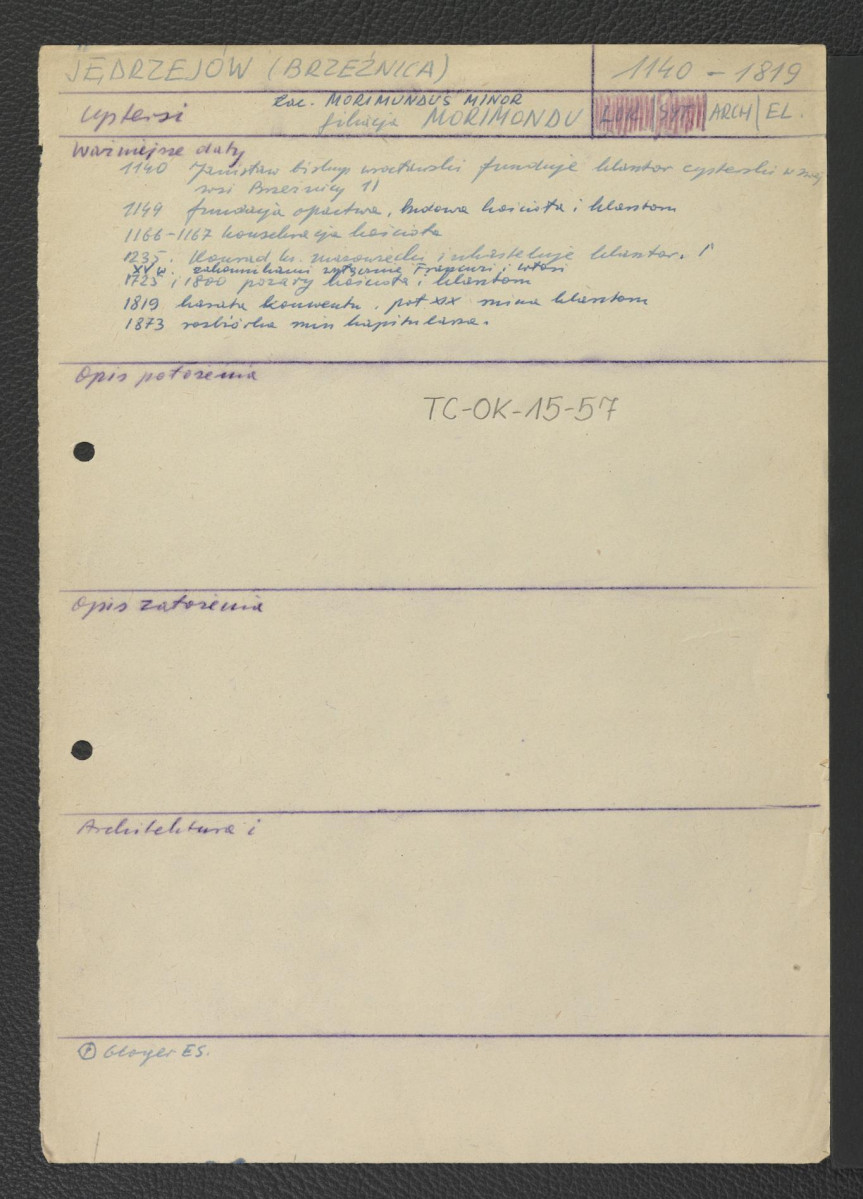 JĘDRZEJÓW (BRZEŹNICA)
1140 - 1819
Cystersi
Łac. MORIMUNDUS MINOR
filiacja MORIMONDU
LOK. SYT. ARCH EL.
Ważniejsze daty
1140 Janisław biskup wrocławski funduje klasztor cysterski w swej
wsi Brzeźnicy 1)
1149 fundacja opactwa, budowa kościoła i klasztoru
1166-1167 konsekracja kościoła
1235. Konrad ks. mazowiecki inkasteluje klasztor. 1
XV w. zakonnikami wyłącznie Francuzi i Włosi
1725 i 1800 pożary kościoła i klasztoru
1819 kasata konwentu. poł XIX ruina klasztoru
1873 rozbiórka ruin kapitularza.
Opis położenia
TC-OK-15-57
Opis założenia
Architektura i
① Gloger ES.